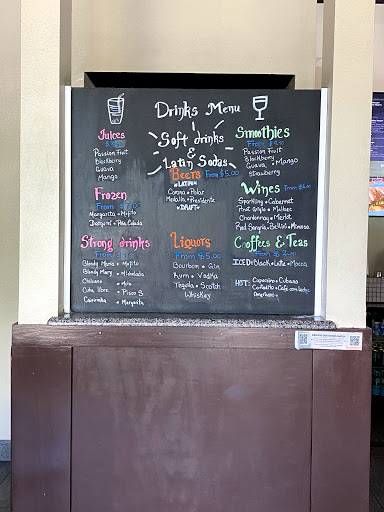 Drinks Menu
Soft drinks
&
Latin Sodas
Juices
Passion Fruit
Blackberry
Guava
Mango
Frozen
From
Margarita • Mojito
Daiquiri • Piña Colada
Strong drinks
From
Bloody Maria • Mojito
Bloody Mary • Michelada
Chilcano • Mule
Cuba Libre • Pisco S
Caipirinha • Margarita
Beers From $5.00
•LATIN•
Corona • Polar
Medalla • Presidente
•DRAFT•
Liquors
From $5.00
Bourbon • Gin
Rum • Vodka
Tequila • Scotch
Whiskey
Smoothies
From
Passion Fruit
Blackberry
Guava • Mango
Strawberry
Wines From
Sparkling • Cabernet
Pinot Grigio • Malbec
Chardonnay • Merlot
Red Sangria • Bellini • Mimosa
Coffees & Teas
From
ICED: Black • Latte • Mocca
HOT: Capuccino • Cubano
Cortadito • Café con leche
Americano •